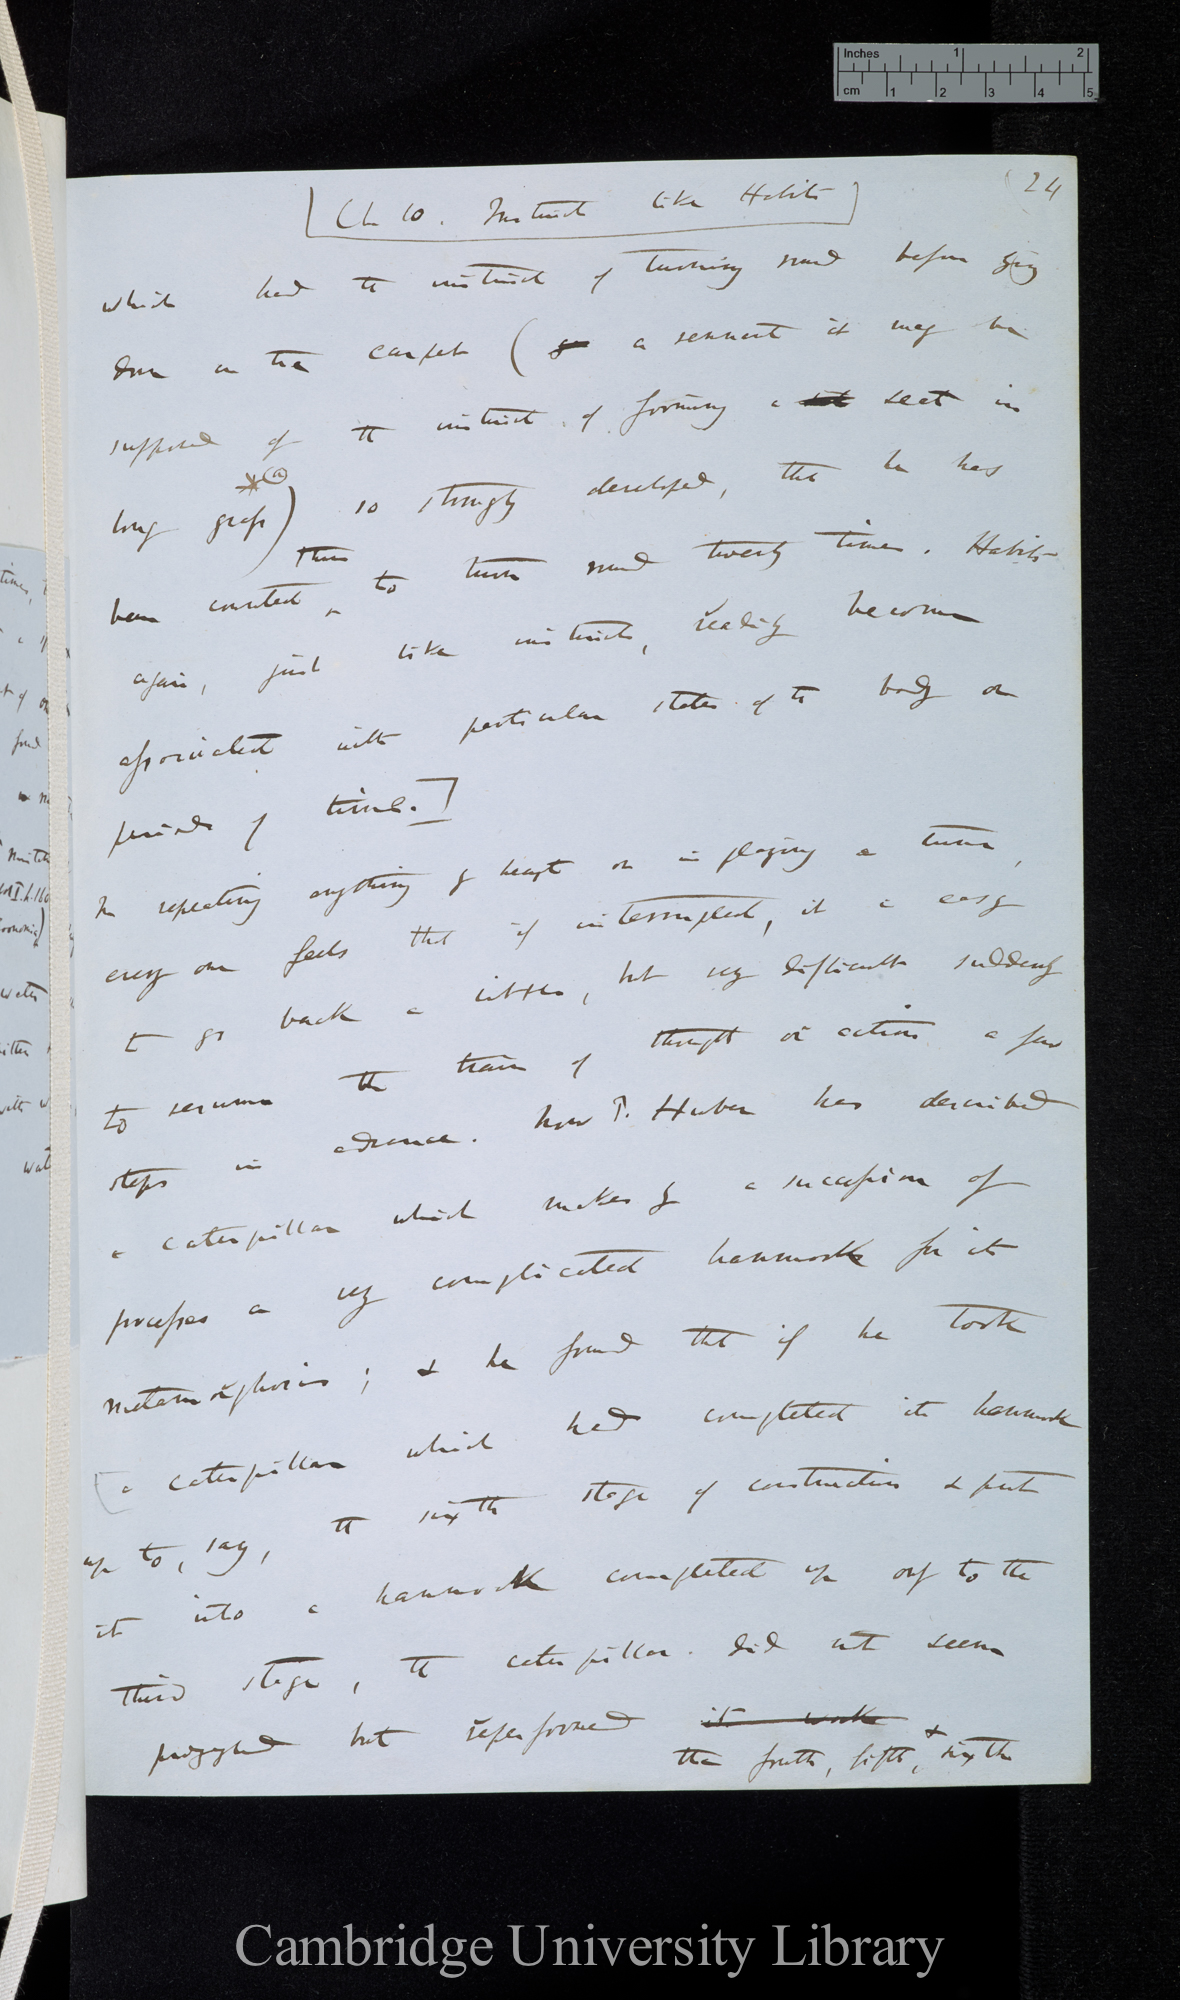 24
[Ch 10. Instinct like Habits]
which had the instinct of turning round before lying
down on the carpet (a remnant it may be
supposed of the instinct of forming a seat in
long grass) so strongly developed, that he has
*(a)
been counted thus to turn round twenty times. Habits
again, just like instincts, readily become
associated with particular states of the body or
periods of time.]
In repeating anything by heart or in playing a tune,
every one feels that if interrupted, it is easy
to go back a little, but very difficult suddenly
to resume the train of thought or action a few
steps in advance. Now P. Huber has described
a caterpillar which makes by a succession of
processes a very complicated hammock for its
metamorphosis; & he found that if he took
a caterpillar which had completed its hammock
up to, say, the sixth stage of construction & put
it into a hammock completed up only to the
third stage, the caterpillar did not seem
puzzled but reperformed it work
the fourth, fifth, & sixth
Inches 1 2
cm 1 2 3 4 5
Cambridge University Library